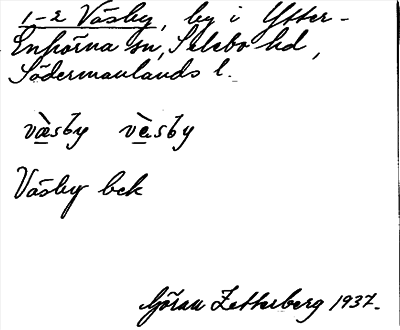 1-2 Väsby, by i Ytter-
Enhörna sn, Selebo hd,
Södermanlands l.
vä̀sby vè̱sby
Väsby bck
Göran Zetterberg 1937.